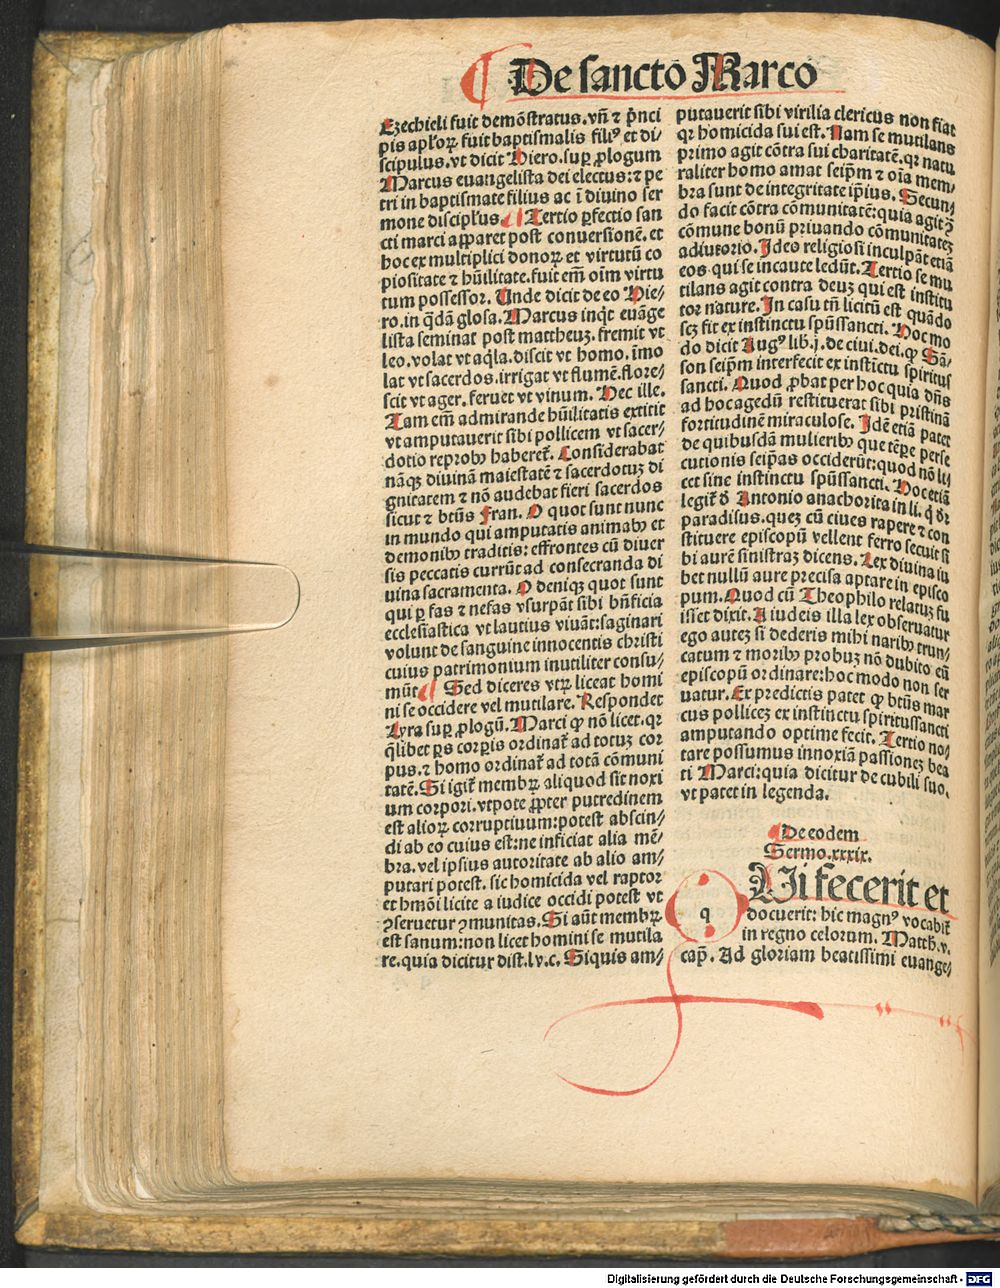 De sancto Marco
Ezechieli fuit demõstratus. vñ ⁊ p̃nci
pis apl'oꝝ fuit baptismalis filiꝰ et di-
scipulus. vt dicit Hiero. sup̱ ꝓlogum
Marcus euangelista dei electus: ⁊ pe
tri in baptismate filius ac ĩ diuino ser
mone discipl'us. Tertio ꝑfectio san
cti marci apparet post conuersionẽ. et
hoc ex multiplici donoꝝ et virtutũ co
piositate ⁊ hũilitate. fuit em̃ oĩm virtu
tum possessor. Unde dicit de eo Hie-
ro. in q̃dã glosa. Marcus inq̇t euãge
lista seminat post mattheuꝫ. fremit vt
leo. volat vt aq̃la. discit vt homo. ĩmo
lat vt sacerdos. irrigat vt flumẽ. flore-
scit vt ager. feruet vt vinum. Hec ille.
Tam em̃ admirande hũilitatis extitit
vt amputauerit sibi pollicem vt sacer-
dotio reprobꝰ haberet̃. Considerabat
nãqꝫ diuinã maiestatẽ ⁊ sacerdotuꝫ di
gnitatem ⁊ nõ audebat fieri sacerdos
sicut ⁊ btũs Fran. O quot sunt nunc
in mundo qui amputatis animabꝰ et
demonibꝰ traditis: effrontes cũ diuer
sis peccatis currũt ad consecranda di
uina sacramenta. O deniqꝫ quot sunt
qui ꝑ fas ⁊ nefas vsurpãt sibi bñficia
ecclesiastica vt lautius viuãt: saginari
volunt de sanguine innocentis christi
cuius patrimonium inutiliter consu-
mũt. Sed diceres vtꝝ liceat homi
ni se occidere vel mutilare. Respondet
Lyra sup̱ ꝓlogũ. Marci ꝙ nõ licet. qꝛ
q̃libet ꝑs corꝑis ordinat̃ ad totuꝫ cor
pus. ⁊ homo ordinat̃ ad totã cõmuni
tatẽ. Si igit̃ membꝝ aliquod sit noxi
um corpori. vtpote ꝓpter putredinem
est alioꝝ corruptiuum: potest abscin-
di ab eo cuius est: ne inficiat alia mẽ-
bra. vel ipsius autoritate ab alio am-
putari potest. sic homicida vel raptor
et hmõi licite a iudice occidi potest vt
ꝯseruetur ꝯmunitas. Si aũt membꝝ
est sanum: non licet homini se mutila
re. quia dicitur dist. lv. c. Siquis am-
putauerit sibi virilia clericus non fiat
qꝛ homicida sui est. Nam se mutilans
primo agit cõtra sui charitatẽ. qꝛ natu
raliter homo amat seip̃m ⁊ oĩa mem-
bra sunt de integritate ip̃ius. Secun-
do facit cõtra cõmunitatẽ: quia agit ꝯ̃
cõmune bonũ priuando cõmunitatẽ
adiutorio. Ideo religiosi inculpãt etiã
eos qui se incaute ledũt. Tertio se mu
tilans agit contra deuꝫ qui est institu
tor nature. In casu tñ licitũ est quãdo
scꝫ fit ex instinctu spũssancti. Hoc mo
do dicit Augꝰ lib. j. de ciui. dei. ꝙ Sã-
son seip̃m interfecit ex instĩctu spiritus
sancti. Quod ꝓbat per hoc quia dñs
ad hoc agẽdũ restituerat sibi pristinã
fortitudinẽ miraculose. Idẽ etiã patet
de quibusdã mulieribꝰ que tẽꝑe ꝑse
cutionis seip̃as occiderũt: quod nõ li-
cet sine instinctu spũssancti. Hoc etiã
legit̃ đ Antonio anachorita in li. q̇ dr̃
paradisus. queꝫ cũ ciues rapere ⁊ con
stituere episcopũ vellent ferro secuit si
bi aurẽ sinistraꝫ dicens. Lex diuina iu
bet nullũ aure precisa aptare in episco
pum. Quod cũ Theophilo relatuꝫ fu
isset dixit. A iudeis illa lex obseruatur
ego auteꝫ si dederis mihi naribꝰ trun-
catum ⁊ moribꝰ probuꝫ nõ dubito eũ
episcopũ ordinare: hoc modo non ser
uatur. Ex predictis patet ꝙ btũs mar
cus polliceꝫ ex instinctu spiritussancti
amputando optime fecit. Tertio no-
tare possumus innoxiã passioneꝫ bea
ti Marci: quia dicitur de cubili suo.
vt patet in legenda.
De eodem
Sermo. xxxix.
q
Ui fecerit et
docuerit: hic magnꝰ vocabit̃
in regno celorum. Matth. v.
cap̃. Ad gloriam beatissimi euange-
Digitalisierung gefördert durch die Deutsche Forschungsgemeinschaft - DFG